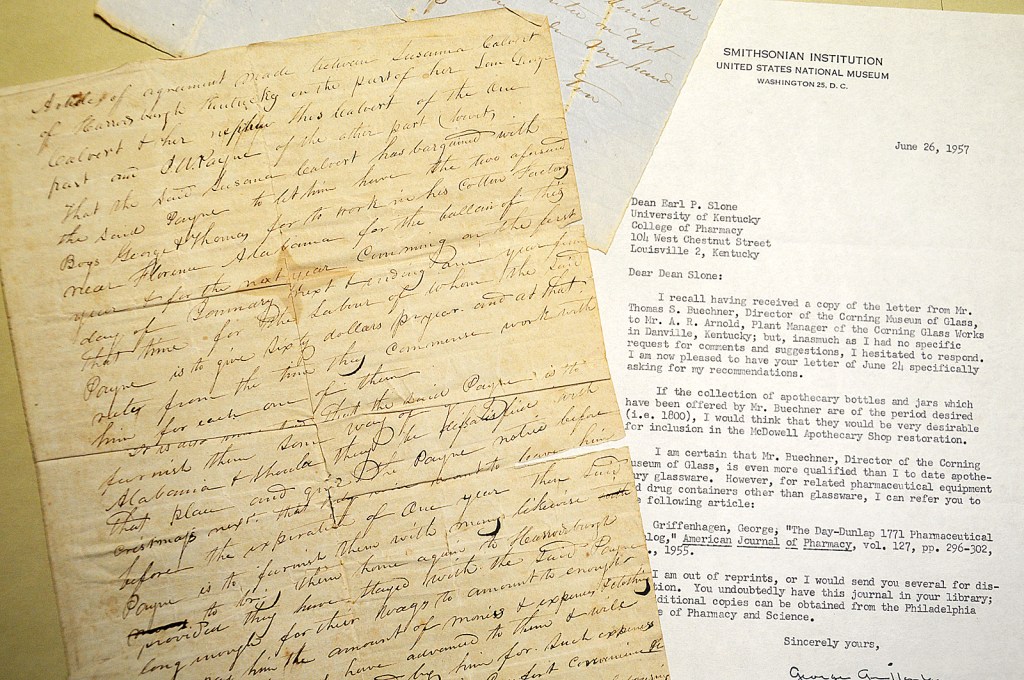 Articles of agreement made between Susanna Calvert
of Harrodsburgh Kentucky on the part of her Son George
Calvert & her nephew Thos Calvert of the One
part and J.W. Payne of the other part (towit)
That the Said Susana Calvert has bargained with
the said Payne to let him have the two aforesaid
Boys George & Thomas for to work in his Cotton Factory
near Florence Alabama for the ballain of this
year & for the next year Comming on the first
day of January next & ending One year from
that time for the Labour of whom the Said
Payne is to give sixty dollars pr year and at that
rates from the time they commence work with
him for each one of them
That the said Payne is to
furnish them Some way of
Alabama & should they be dissatisfied with
that place and give the Payne notice before
Cristmass next that
before the expiration of One year then Said
Payne is to furnish them with money likewise
to bring them home again to Harrodsburgh
provided they have stayed with the Said Payne
long enough for their Wags to amount to enough
him the amount of moneis & expenses
have advanced to them & will
him for such expenses
Comfort Convenient
SMITHSONIAN INSTITUTION
UNITED STATES NATIONAL MUSEUM
WASHINGTON 25, D. C.
June 26, 1957
Dean Earl P. Slone
University of Kentucky
College of Pharmacy
104 West Chestnut Street
Louisville 2, Kentucky
Dear Dean Slone:
I recall having received a copy of the letter from Mr.
Thomas S. Buechner, Director of the Corning Museum of Glass,
to Mr. A. R. Arnold, Plant Manager of the Corning Glass Works
in Danville, Kentucky; but, inasmuch as I had no specific
request for comments and suggestions, I hesitated to respond.
I am now pleased to have your letter of June 24 specifically
asking for my recommendations.
If the collection of apothecary bottles and jars which
have been offered by Mr. Buechner are of the period desired
(i.e. 1800), I would think that they would be very desirable
for inclusion in the McDowell Apothecary Shop restoration.
I am certain that Mr. Buechner, Director of the Corning
useum of Glass, is even more qualified than I to date apothe-
ry glassware. However, for related pharmaceutical equipment
d drug containers other than glassware, I can refer you to
e following article:
Griffenhagen, George, "The Day-Dunlap 1771 Pharmaceutical
log," American Journal of Pharmacy, vol. 127, pp. 296-302,
., 1955.
I am out of reprints, or I would send you several for dis-
tion. You undoubtedly have this journal in your library;
ditional copies can be obtained from the Philadelphia
e of Pharmacy and Science.
Sincerely yours,
George